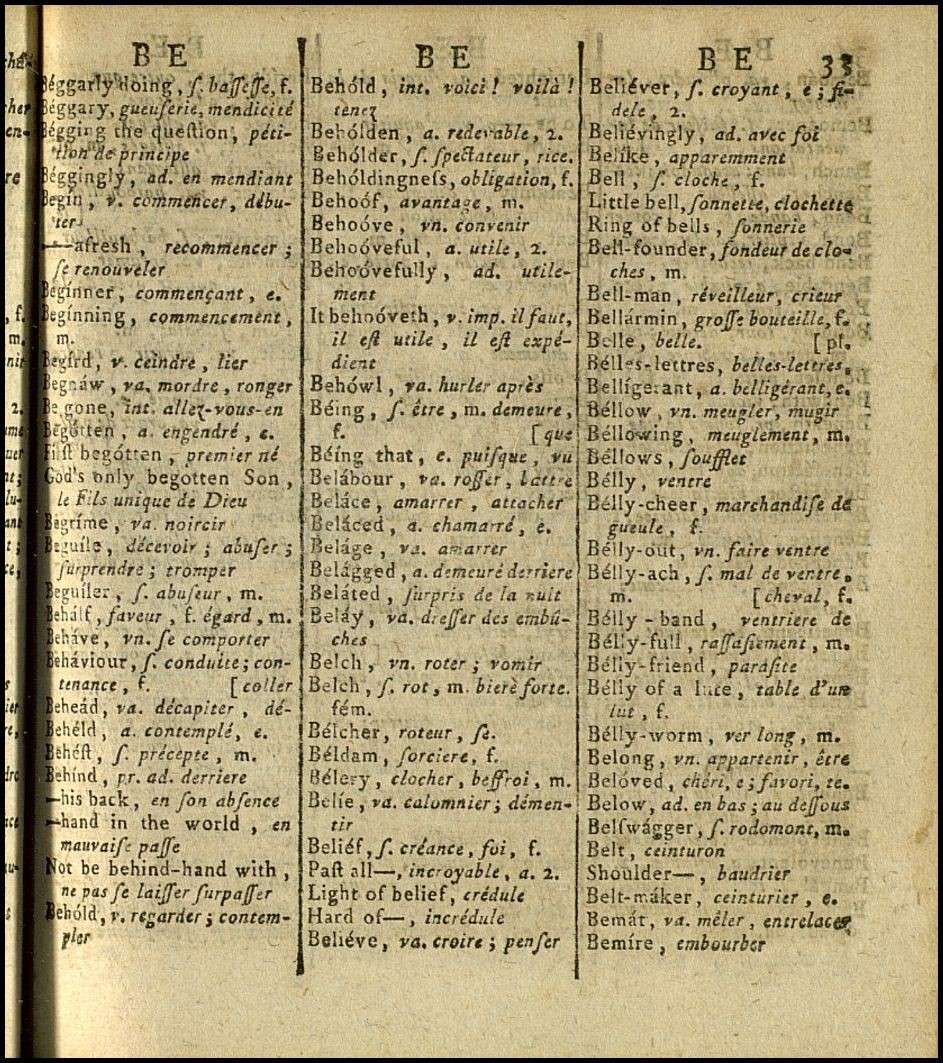 BE
Béggarly doing, ſ. baſſeſſe, f.
Béggary, gueuſerie, mendicité
Bégging the queſtion, péti-
tion de principe
Béggingly, ad. en mendiant
Begín, v. commencer, débu-
ter
—afreſh, recommencer;
ſe renouveler
Begínner, commençant, e.
Begínning, commencement,
m.
Begírd, v. ceindre, lier
Begnáw, va. mordre, ronger
Begone, int. allez-vous-en
Begótten, a. engendré, e.
Fiſt begótten, premier né
God's only begotten Son,
le Fils unique de Dieu
Begríme, va. noircir
Beguíle, décevoir; abuſer;
ſurprendre; tromper
Beguíler, ſ. abuſeur, m.
Behálf, faveur, f. égard, m.
Beháve, vn. ſe comporter
Beháviour, ſ. conduite; con-
tenance, f. [coller
Beheád, va. décapiter, dé-
Behéld, a. contemplé, e.
Behéſt, ſ. précepte, m.
Behínd, pr. ad. derriere
—his back, en ſon abſence
—hand in the world, en
mauvaiſe paſſe
Not be behind-hand with,
ne pas ſe laiſſer ſurpaſſer
Behóld, v. regarder; contem-
pler
BE
Behóld, int. voici! voilà!
tenez
Behólden, a. redevable, 2.
Behólder, ſ. ſpectateur, rice.
Behóldingneſs, obligation, f.
Behoóf, avantage, m.
Behoóve, vn. convenir
Behoóveful, a. utile, 2.
Behoóvefully, ad. utile-
ment
It behoóveth, v. imp. il faut,
il eſt utile, il eſt expé-
dient
Behówl, va. hurler après
Béing, ſ. être, m. demeure,
f. [que
Béing that, c. puiſque, vu
Belábour, va. roſſer, battre
Beláce, amarrer, attacher
Beláced, a. chamarré, e.
Beláge, va. amarrer
Belágged, a. demeuré derriere
Beláted, ſurpris de la nuit
Beláy, va. dreſſer des embû-
ches
Belch, vn. roter; vomir
Belch, ſ. rot, m. bierè forte.
fém.
Bélcher, roteur, ſe.
Béldam, ſorciere, f.
Bélery, clocher, beffroi, m.
Belíe, va. calomnier; démen-
tir
Beliéf, ſ. créance, foi, f.
Paſt all—, incroyable, a. 2.
Light of belief, crédule
Hard of—, incrédule
Beliéve, va. croire; penſer
BE 33
Beliéver, ſ. croyant, e; fi-
dele, 2.
Beliévingly, ad. avec foi
Belíke, apparemment
Bell, ſ. cloche, f.
Little bell, ſonnette, clochette
Ring of bells, ſonnerie
Bell-founder, fondeur de clo-
ches, m.
Bell-man, réveilleur, crieur
Bellármin, groſſe bouteille, f.
Belle, belle. [pl.
Bélles-lettres, belles-lettres,
Bellígerant, a. belligérant, e.
Béllow, vn. meugler, mugir
Béllowing, meuglement, m.
Béllows, ſoufflet
Bélly, ventre
Bélly-cheer, marchandiſe de
gueule, f.
Bélly-out, vn. faire ventre
Bélly-ach, ſ. mal de ventre,
m. [cheval, f.
Bélly-band, ventriere de
Bélly-full, raſſaſiement, m.
Bélly-friend, paraſite
Bélly of a lute, table d'un
lut, f.
Bélly-worm, ver long, m.
Belong, vn. appartenir, être
Belóved, chéri, e; favori, te.
Below, ad. en bas; au deſſous
Belſwágger, ſ. rodomont, m.
Belt, ceinturon
Shoulder—, baudrier
Belt-máker, ceinturier, e.
Bemát, va. mêler, entrelacer
Bemíre, embourber